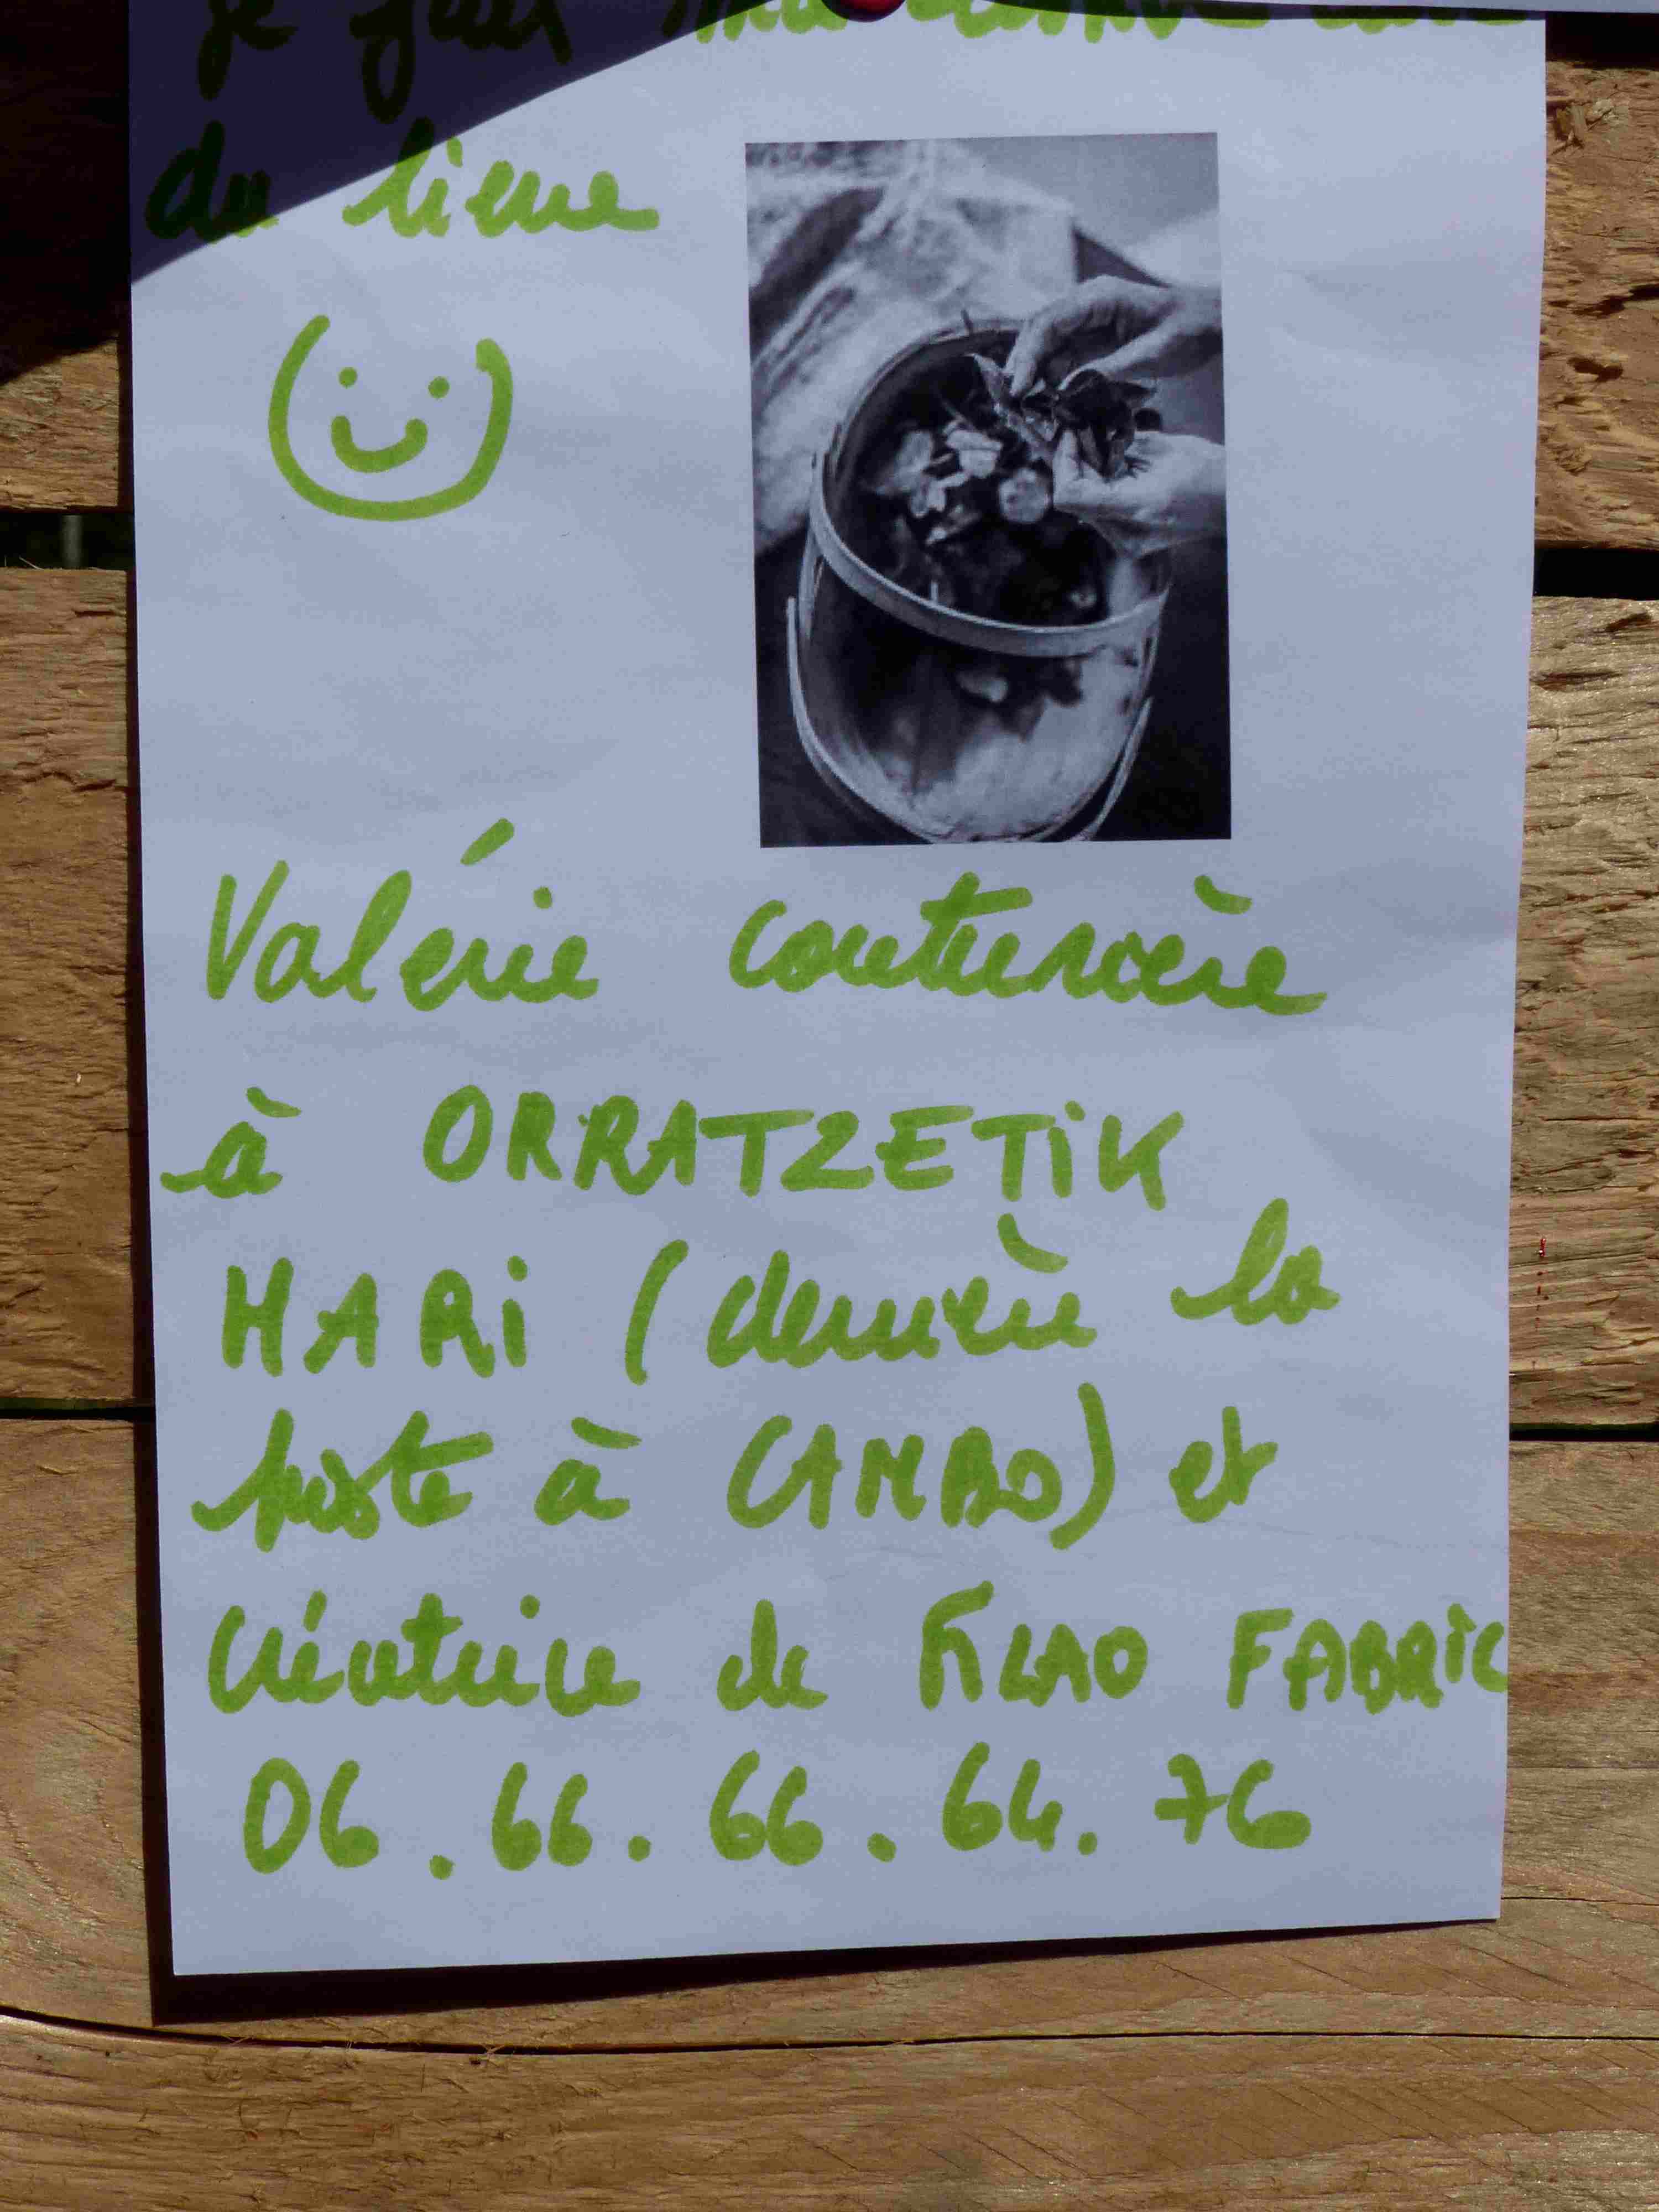 je fais ma
du lierre
Valérie couturière
à ORRATZETIK
HARi (derrière la
poste à CAMBO) et
créatrice de KLAO FABRIC
06.66.66.64.76